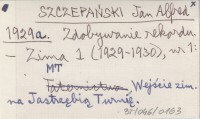 SZCZEPAŃSKI Jan Alfred
1929a. Zdobywanie rekordu
– Zima 1 (1929-1930), nr 1:
MT
Taternictwo Wejście zim.
na Jastrzębią Turnię.